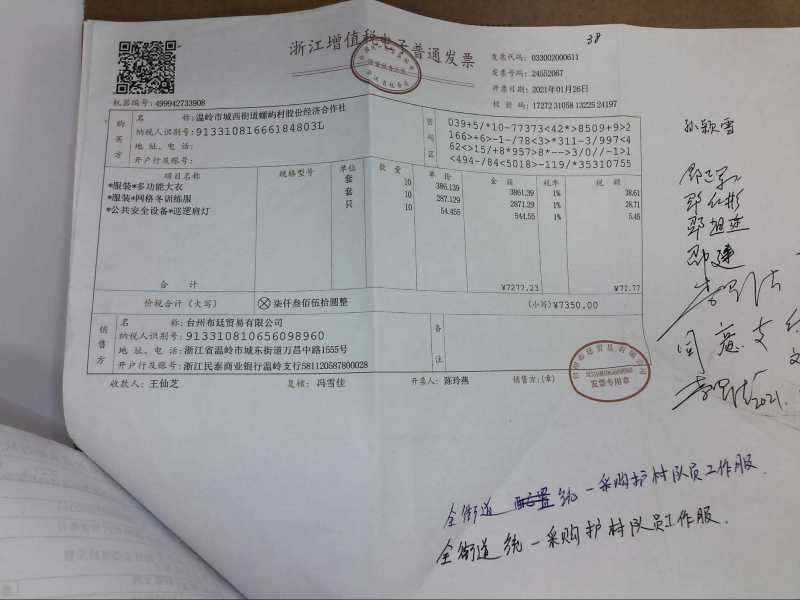 38
浙江增值税电子普通发票
发票代码: 033002000611
发票号码: 24552067
开票日期: 2021年01月26日
校 验 码: 17272 31058 13225 24197
机器编号: 499942733908
购买方
名 称: 温岭市城西街道螺屿村股份经济合作社
纳税人识别号: 91331081666184803L
地 址、电 话:
开户行及账号:
密码区
039+5/*10-77373<42*>8509+9>2
166>+6>-1-/78<3>*311-3/997<4
62<>15/+8*957>8*-->3/0//-1>1
<494-/84<5018>-119/*35310755
项目名称 规格型号 单位 数 量 单 价 金 额 税率 税 额
*服装*多功能大衣 套 10 386.139 3861.39 1% 38.61
*服装*网格冬训练服 套 10 287.129 2871.29 1% 28.71
*公共安全设备*巡逻肩灯 只 10 54.455 544.55 1% 5.45
合 计 ¥7277.23 ¥72.77
价税合计（大写） ⊗柒仟叁佰伍拾圆整 (小写)¥7350.00
销售方
名 称: 台州布廷贸易有限公司
纳税人识别号: 913310810656098960
地 址、电 话: 浙江省温岭市城东街道万昌中路1555号
开户行及账号: 浙江民泰商业银行温岭支行581120587800028
备注
收款人: 王仙芝 复核: 冯雪佳 开票人: 陈玲燕 销售方:(章)
台州布廷贸易有限公司
发票专用章
孙颖雪
邵红彬
邵旭
邵建
同意支
2021.
全街道 统一采购护村队员工作服.
全街道统一采购护村队员工作服.